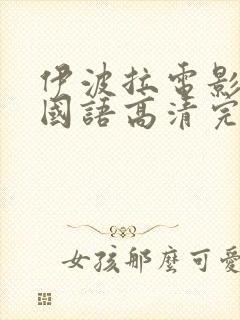 伊波拉電影
國語高清完
女孩那麼可愛